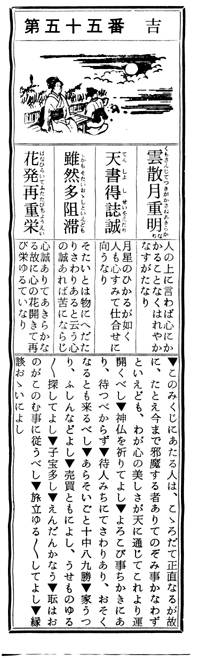 第五十五番 吉
雲散月重明
天書得誌誠
雖然多阻滞
花発再重栄
人の上に言わば心にか
かることなくはれやか
なすがたなり
月星のひかるが如く
人も心すみて仕合せに
向うなり
そたいとは物にへだた
りさわりあると云う心
の誠あれば苦にならじ
心誠ありてあきらかな
る故に心の花開きて再
び栄ゆるていなり
▼このみくじにあたる人は、こゝろだて正直なるが故
に、たとえ今まで邪魔する者ありてのぞみ事かなわず
といえども、わが心の美しさが天に通じてこれより運
開くべし▼神仏を祈りてよし▼よろこび事ちかきにあ
り、待つべからず▼待人みちにてさわりあり、おそく
なるとも来るべし▼あらそいごと十中八九勝▼家うつ
り、ふしんともよし▼売買ともにし、うせものゆる
〳〵探してよし▼子宝多し▼えんだんかなう▼耴はお
のがこのむ事に従うべし▼旅立ゆる〳〵してよし▼縁
談おゝいによし